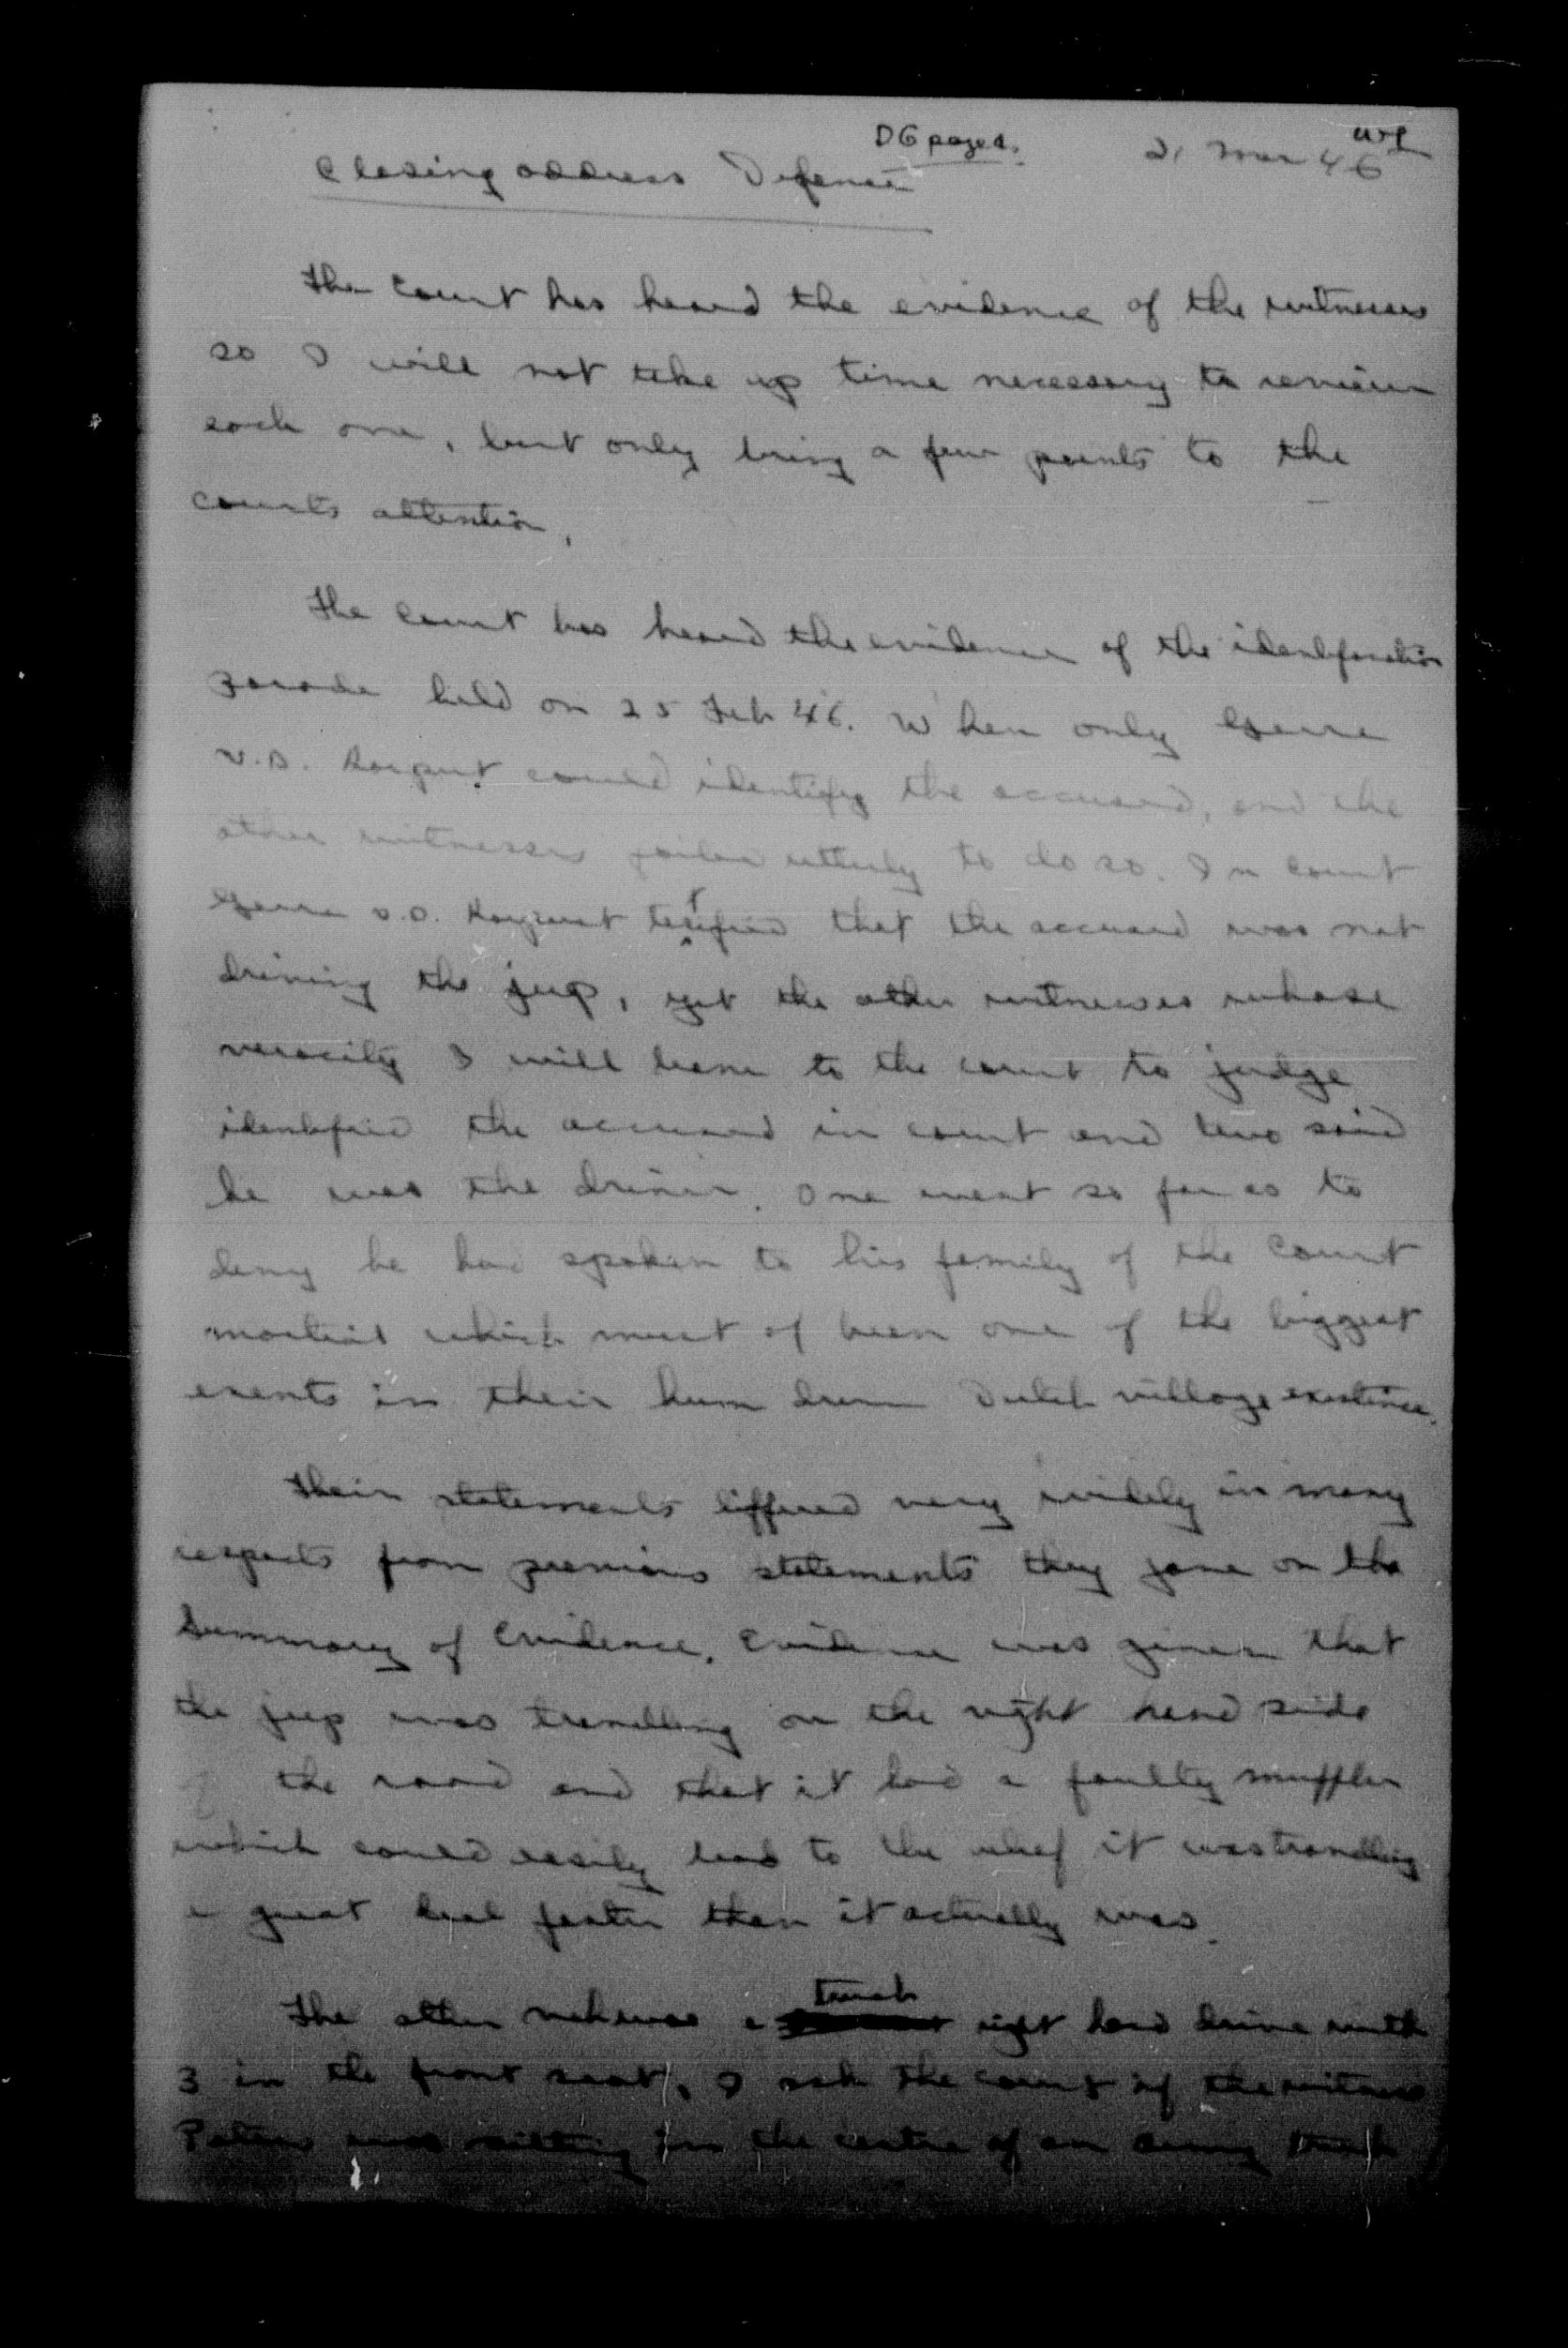 DG paged.
21 Mar 46
Closing address Defence
The court has heard the evidence of the witnesses
so I will not take up time necessary to review
each one, but only bring a few points to the
courts attention.
The court has heard the evidence of the identification
parade held on 25 Feb 46. When only
v.D. could identify the accused, and the
other witnesses failed utterly to do so. In court
v.D. testified that the accused was not
driving the jeep, yet the other witnesses whose
veracity I will leave to the court to judge
identified the accused in court and two said
he was the driver. One went so far as to
deny he had spoken to his family of the court
martial which must of been one of the biggest
events in their hum drum Dutch village existence.
Their statements differed very widely in many
respects from previous statements they gave on the
Summary of Evidence. Evidence was given that
the jeep was travelling on the right hand side
of the road and that it had a faulty muffler
which could easily lead to the belief it was travelling
a great deal faster than it actually was.
truck
The other veh was a right hand drive with
3 in the front seat, I ask the court if the witness
Peters was sitting in the centre of an army truck